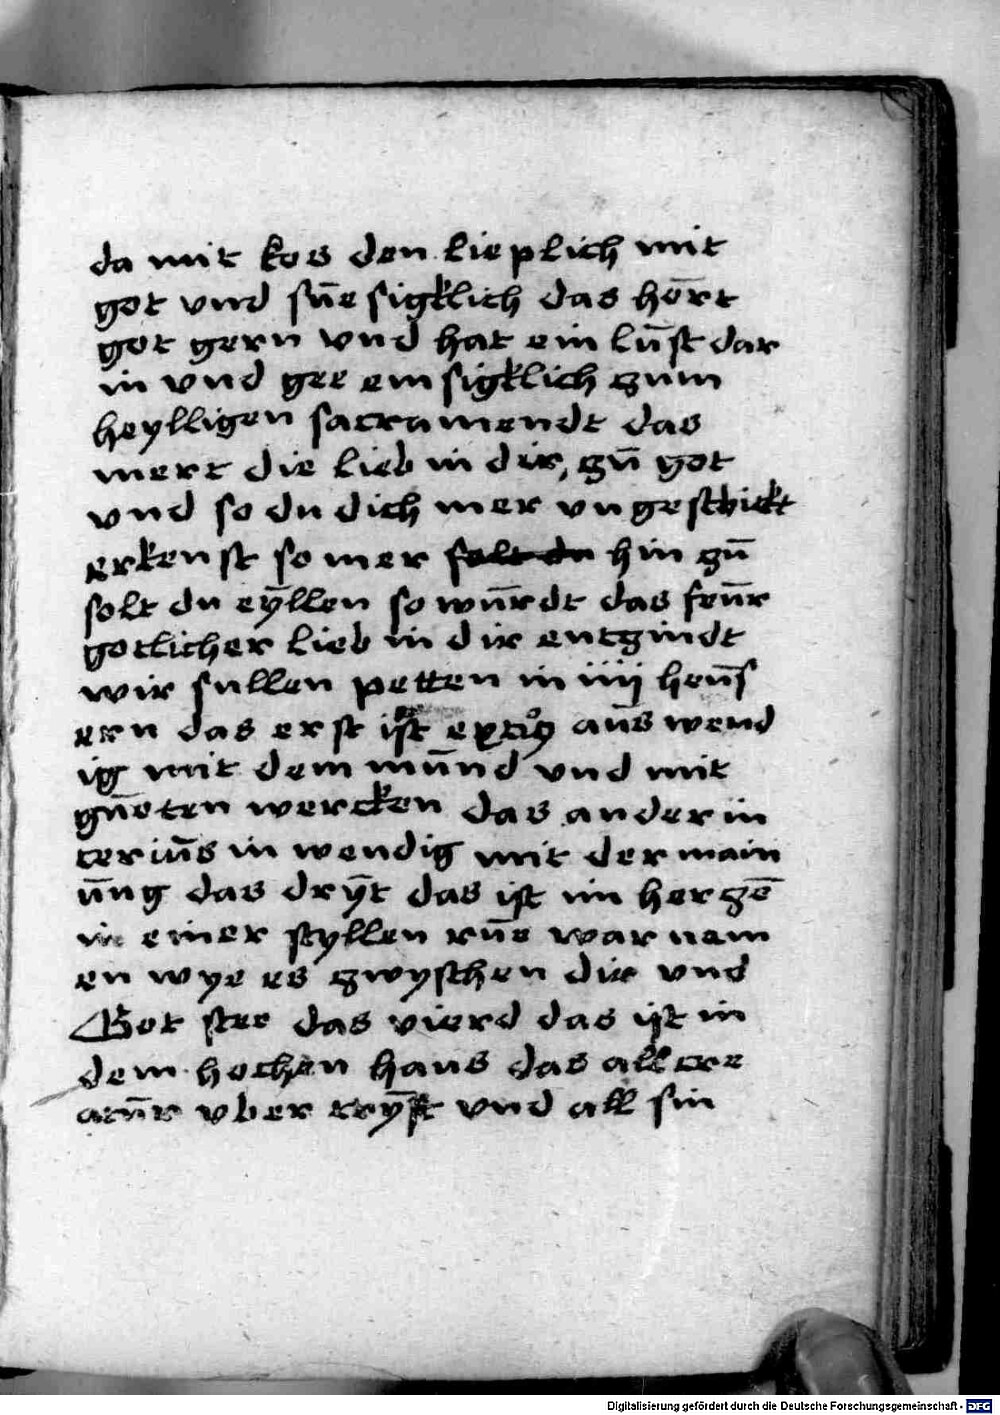 da mit kos den lieplich mit
got vnd sűesigklich das hőrt
got gern vnd hat ein lűst dar
in vnd gee emsigklich zum
heylligen sacramendt das
mert die lieb in dir, zű got
vnd so du dich mer vngeschickt
erkenst so mer solt du hin zű
solt du eÿllen so wűrdt das feűr
gotlicher lieb in dir entzindt
wir sullen petten in iiij heűs
ern das erst ist auswend
ig mit dem műnd vnd mit
gűeten wercken das ander in
teriűs inwendig mit der main
űng das drÿt das ist im herzē
in einer styllen rűe war nam
en wye es zwyschen dir vnd
Got stee das vierd das ist in
dem hochen haus das all cre
atűr vber trÿft vnd all sin
Digitalisierung gefördert durch die Deutsche Forschungsgemeinschaft - DFG